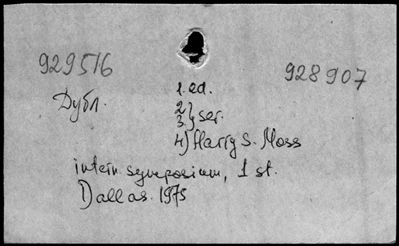 929516
928907
Дубл.
1. ed.
2} ser.
3.}
4) Harry S. Moss
intern symposium, 1 st.
Dallas. 1975